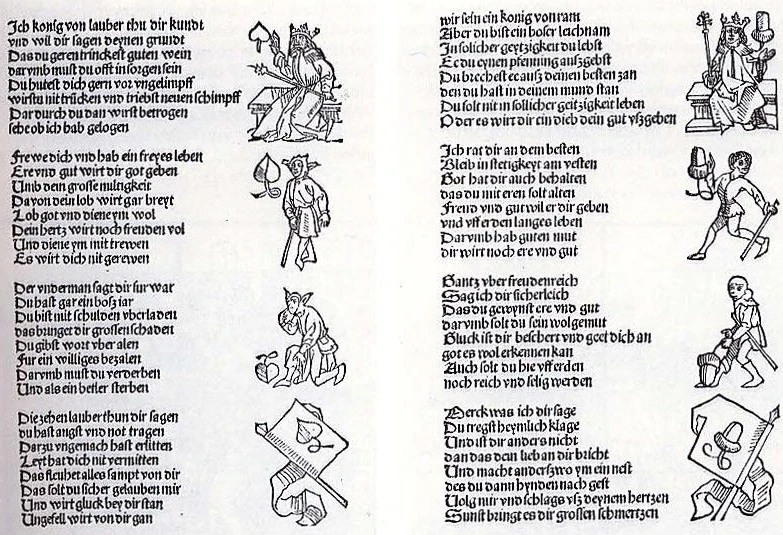 Ich konig von lauber thu dir kundt
vnd wil dir sagen deynen grundt
Das du geren trinckest guten wein
darvmb must du offt in sorgen sein
Du hutest dich gern vor vngelimpff
wirstu nit trucken vnd triebst neuen schimpff
Dar durch du dan wirst betrogen
sehe ob ich hab gelogen
Frewe dich vnd hab ein freyes leben
Ere vnd gut wirt dir got geben
Umb dein grosse miltigkeit
Davon dein lob wirt gar breyt
Lob got vnd diene ym wol
Dein hertz wirt noch freuden vol
Und diene ym mit trewen
Es wirt dich nit gerewen
Der vnderman sagt dir fur war
Du hast gar ein bosz iar
Du bist mit schulden vberladen
das bringet dir grossen schaden
Du gibst wort vber alen
Fur ein williges bezalen
Darvmb must du verderben
Und als ein betler sterben
Die zehen lauber thun dir sagen
du hast angst vnd not tragen
Darzu vngemach hast erlitten
Leyt hat dich nit vermitten
Das fleuhet alles sampt von dir
Das solt du sicher gelauben mir
Und wirt gluck bey dir stan
Ungefell wirt von dir gan
wir sein ein konig von ram
Aber du bist ein boser leichnam
In solicher geytzigkeit du lebst
Ee du eynen pfenning auszgebst
Du brechest ee ausz deinen besten zan
den du hast in deinem mund stan
Du solt nit in sollicher geitzigkeit leben
Oder es wirt dir ein dieb dein gut vszgeben
Ich rat dir an dem besten
Bleib in stetigkeyt am vesten
Got hat dir auch behalten
das du mit eren solt alten
Freud vnd gut wil er dir geben
vnd vff erden langes leben
Darvmb hab guten mut
dir wirt noch ere vnd gut
Gantz vber freudenreich
Sag ich dir sicherleich
Das du gewynst ere vnd gut
darvmb solt du sein wolgemut
Gluck ist dir beschert vnd geet dich an
got es wol erkennen kan
Auch solt du hie vff erden
noch reich vnd selig werden
Merck was ich dir sage
Du tregst heymlich klage
Und ist dir anders nicht
dan das dein lieb an dir bricht
Und macht anderszwo ym ein nest
des du dann hynden nach gest
Volg mir vnd schlags vsz deynem hertzen
Sunst bringt es dir grossen schmertzen